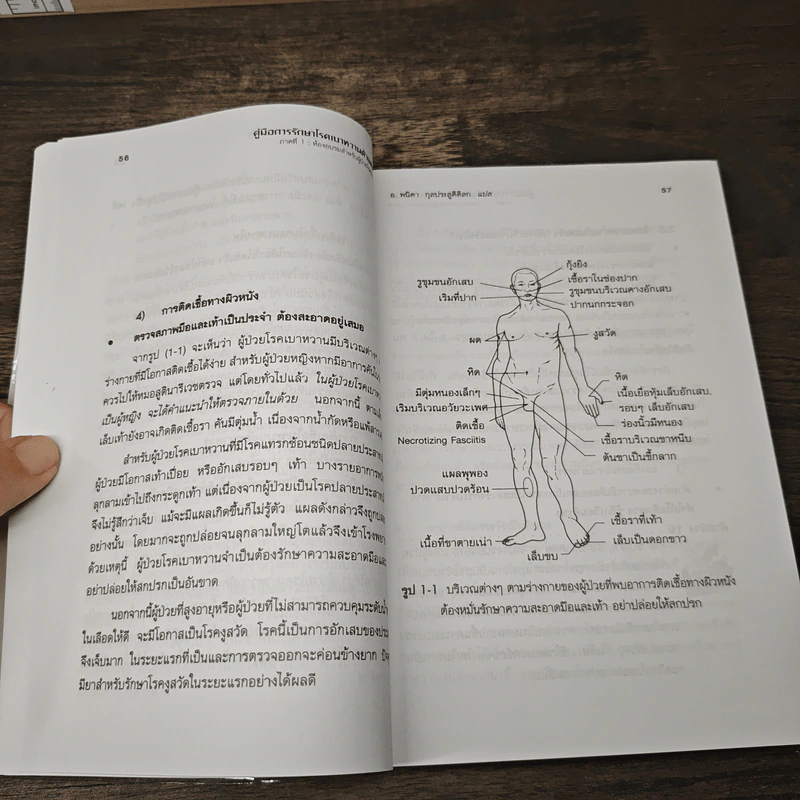 56
คู่มือการรักษาโรคเบาหวานด้วย
ภาคที่ 1 : ห้องอบรมสำหรับผู้ป่วย
4) การติดเชื้อทางผิวหนัง
• ตรวจสภาพมือและเท้าเป็นประจำ ต้องสะอาดอยู่เสมอ
จากรูป (1-1) จะเห็นว่า ผู้ป่วยโรคเบาหวานมีบริเวณต่างๆ
ร่างกายที่มีโอกาสติดเชื้อได้ง่าย สำหรับผู้ป่วยหญิงหากมีอาการคัน
ควรไปให้หมอสูตินารีเวชตรวจ แต่โดยทั่วไปแล้ว ในผู้ป่วยโรคเบาหวาน
เป็นผู้หญิง จะได้คำแนะนำให้ตรวจภายในด้วย นอกจากนี้ ตาม
เล็บเท้ายังอาจเกิดติดเชื้อรา คันมีตุ่มน้ำ เนื่องจากน้ำกัดหรือแพ้สาร
สำหรับผู้ป่วยโรคเบาหวานที่มีโรคแทรกซ้อนชนิดปลายประสาท
ผู้ป่วยมีโอกาสเท้าเปื่อย หรืออักเสบรอบๆ เท้า บางรายอาการ
ลุกลามเข้าไปถึงกระดูกเท้า แต่เนื่องจากผู้ป่วยเป็นโรคปลายประสาท
จึงไม่รู้สึกว่าเจ็บ แม้จะมีแผลเกิดขึ้นก็ไม่รู้ตัว แผลดังกล่าวจึงถูก
อย่างนั้น โดยมากจะถูกปล่อยจนลุกลามใหญ่โตแล้วจึงเข้าโรง
ด้วยเหตุนี้ ผู้ป่วยโรคเบาหวานจำเป็นต้องรักษาความสะอาดมือและ
อย่าปล่อยให้สกปรกเป็นอันขาด
นอกจากนี้ผู้ป่วยที่สูงอายุหรือผู้ป่วยที่ไม่สามารถควบคุมระดับน้ำ
ในเลือดให้ดี จะมีโอกาสเป็นโรคงูสวัด โรคนี้เป็นการอักเสบของ
จึงเจ็บมาก ในระยะแรกที่เป็นและการตรวจออกจะค่อนข้างยาก
มียาสำหรับรักษาโรคงูสวัดในระยะแรกอย่างได้ผลดี
อ. พนิดา กุลประสูติดิลก แปล
57
กุ้งยิง
รูขุมขนอักเสบ
เชื้อราในช่องปาก
เริมที่ปาก
รูขุมขนบริเวณคางอักเสบ
ปากนกกระจอก
ผด
งูสวัด
หิด
หิด
มีตุ่มหนองเล็กๆ
เนื้อเยื่อหุ้มเล็บอักเสบ,
เริมบริเวณอวัยวะเพศ
รอบๆ เล็บอักเสบ
ติดเชื้อ
ร่องนิ้วมีหนอง
Necrotizing Fasciitis
เชื้อราบริเวณขาหนีบ
ต้นขาเป็นขี้กลาก
แผลพุพอง
ปวดแสบปวดร้อน
เชื้อราที่เท้า
เนื้อที่ขาตายเน่า
เล็บเป็นดอกขาว
เล็บขบ
รูป 1-1 บริเวณต่างๆ ตามร่างกายของผู้ป่วยที่พบอาการติดเชื้อทางผิวหนัง
ต้องหมั่นรักษาความสะอาดมือและเท้า อย่าปล่อยให้สกปรก